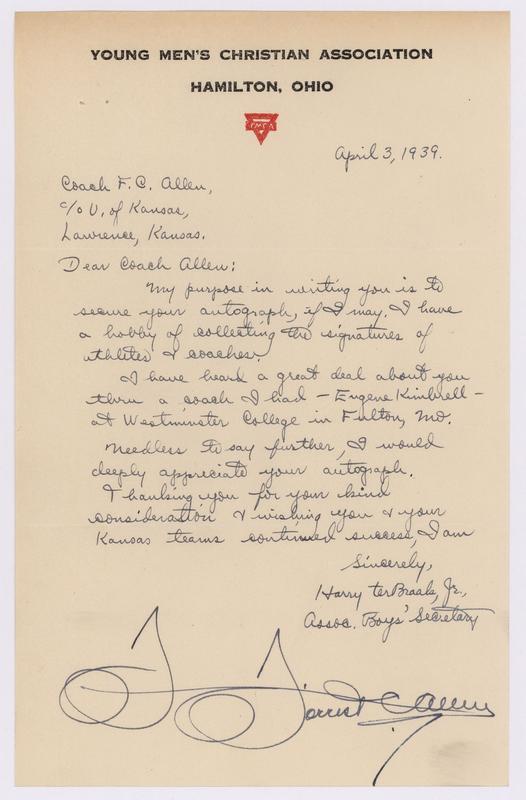 YOUNG MEN'S CHRISTIAN ASSOCIATION
HAMILTON, OHIO
YMCA
April 3, 1939.
Coach F. C. Allen,
c/o U. of Kansas,
Lawrence, Kansas.
Dear Coach Allen:
My purpose in writing you is to
secure your autograph, if I may. I have
a hobby of collecting the signatures of
athletes & coaches.
I have heard a great deal about you
thru a coach I had – Eugene Kimbrell –
at Westminster College in Fulton, Mo.
Needless to say further, I would
deeply appreciate your autograph.
Thanking you for your kind
consideration & wishing you & your
Kansas teams continued success, I am
Sincerely,
Harry terBraak, Jr.,
Assoc. Boys' Secretary
Forrest C Allen